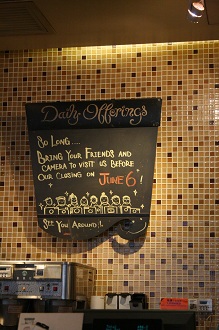 Daily Offerings
So Long....
Bring Your Friends and
camera to visit us before
our closing on June 6!
See You Around!